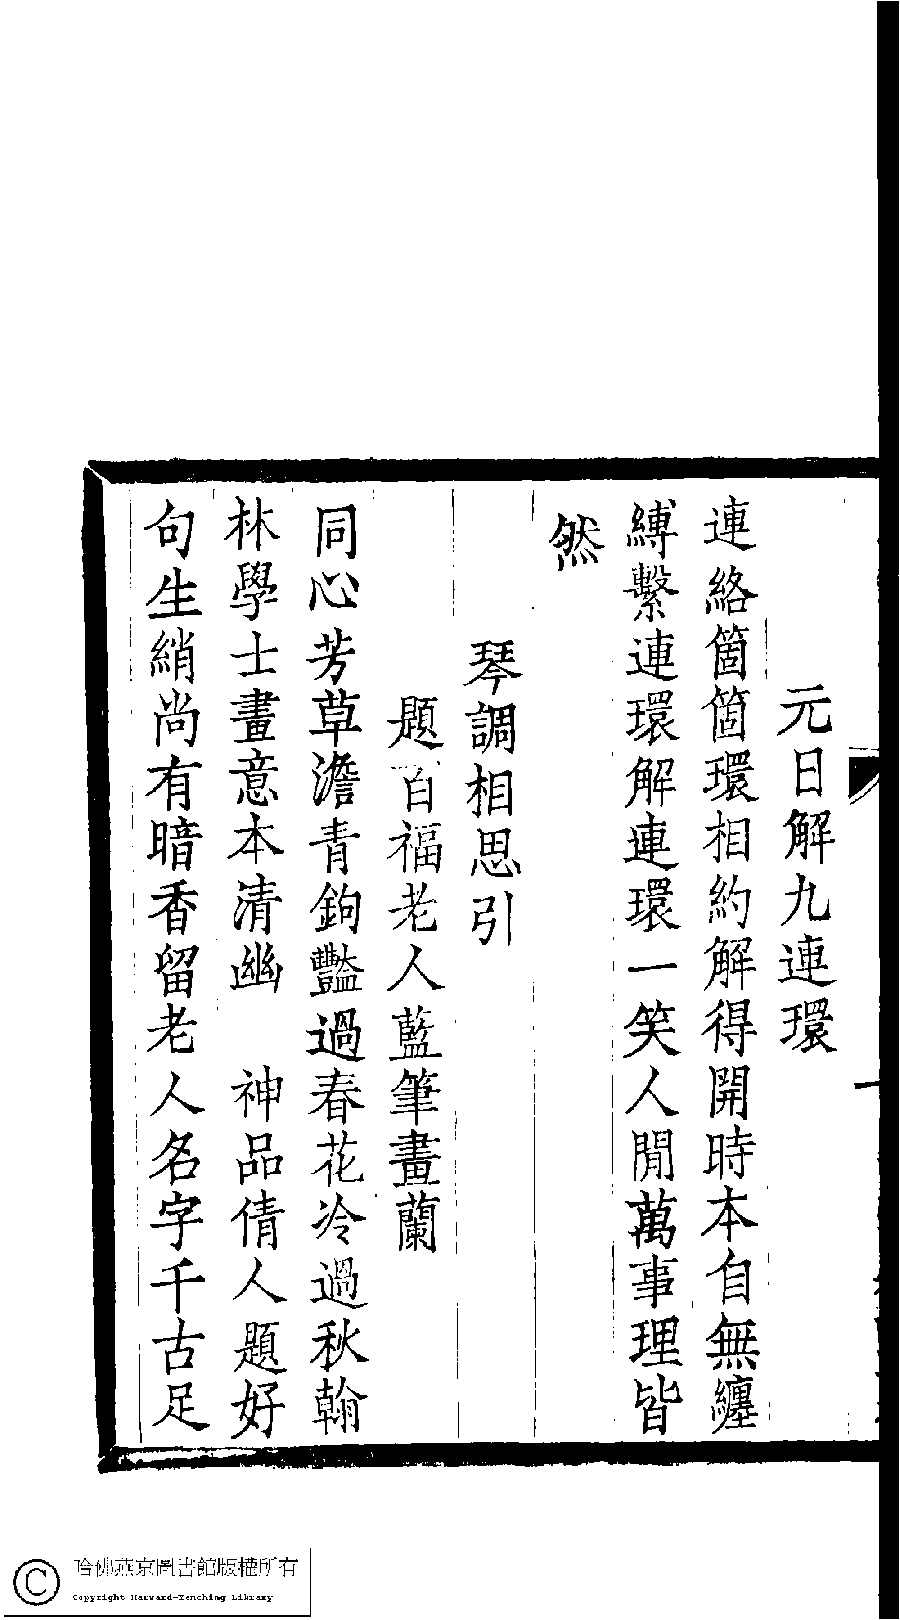 元日解九連環
連絡箇箇環相約解得開時本自無纏
縛繫連環解連環一笑人閒萬事理皆
然
琴調相思引
題百福老人藍筆畫蘭
同心芳草澹青鉤豔過春花冷過秋翰
林學士畫意本清幽　神品倩人題好
句生綃尚有暗香留老人名字千古足
哈佛燕京圖書館版權所有
Copyright Harvard-Yenching Library